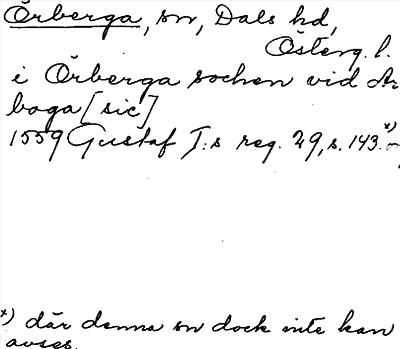 Örberga, sn, Dals hd,
Österg. l.
i Örberga sochen vid Ar
boga [sic]
1559 Gustaf I:s reg. 29, s. 143. x)
x) där denna sn dock inte kan
avses.